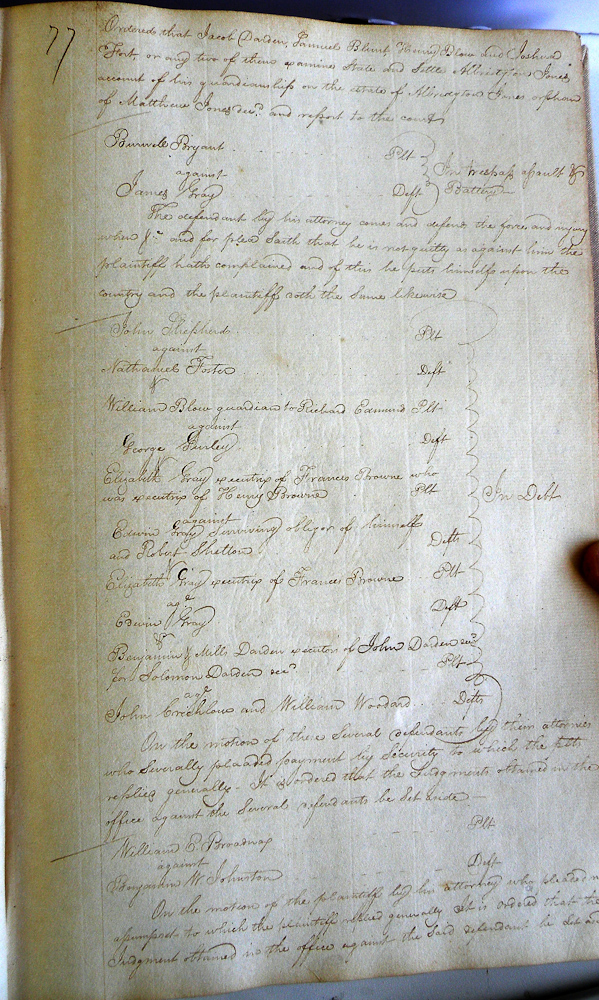 77
Ordered that Jacob Darden, Samuel Blunt Henry Blow and Joshua
Fort, or any two of them examine State and Settle Albridgton Jones,
account of his guardianship on the estate of Albridgton Jones orphan
of Matthew Jones decd. and report to the court
Burwell Bryant Plt
against
James Gray Deft
In trespass assault &
Battery
The defendant by his attorney comes and defends the force and injury
when &c and for plea Saith that he is not guilty as against him the
plaintiff hath complained and of this he puts himself upon the
country and the plaintiff doth the Same likewise
John Shepherd Plt
against
Nathaniel Foster Deft
&
William Blow guardian to Richard Edmund Plt
against
George Gurley Deft
&
Elizabeth Gray executrix of Frances Browne who
was executrix of Henry Browne Plt
against
Edwin Gray Surviving obligor of himself
and Robert Shelton Defts
&
Elizabeth Gray executrix of Frances Browne Plt
agt
Edwin Gray Deft
&
Benjamin & Mills Darden executors of John Darden decd
for Solomon Darden decd Plt
agt
John Crichlow and William Woodard Defts
In Debt
On the motion of these Several defendants by their attornies
who Severally pleaded payment by Security to which the plts
replied generally. It is ordered that the Judgments obtained in the
office against the Several defendants be Set aside
William E. Broadnax Plt
against
Benjamin W. Johnston Deft
On the motion of the plaintiff by his attorney who pleaded
assumpsit to which the plaintiff replied generally It is ordered that the
Judgment obtained in the office against the Said defendant be Set